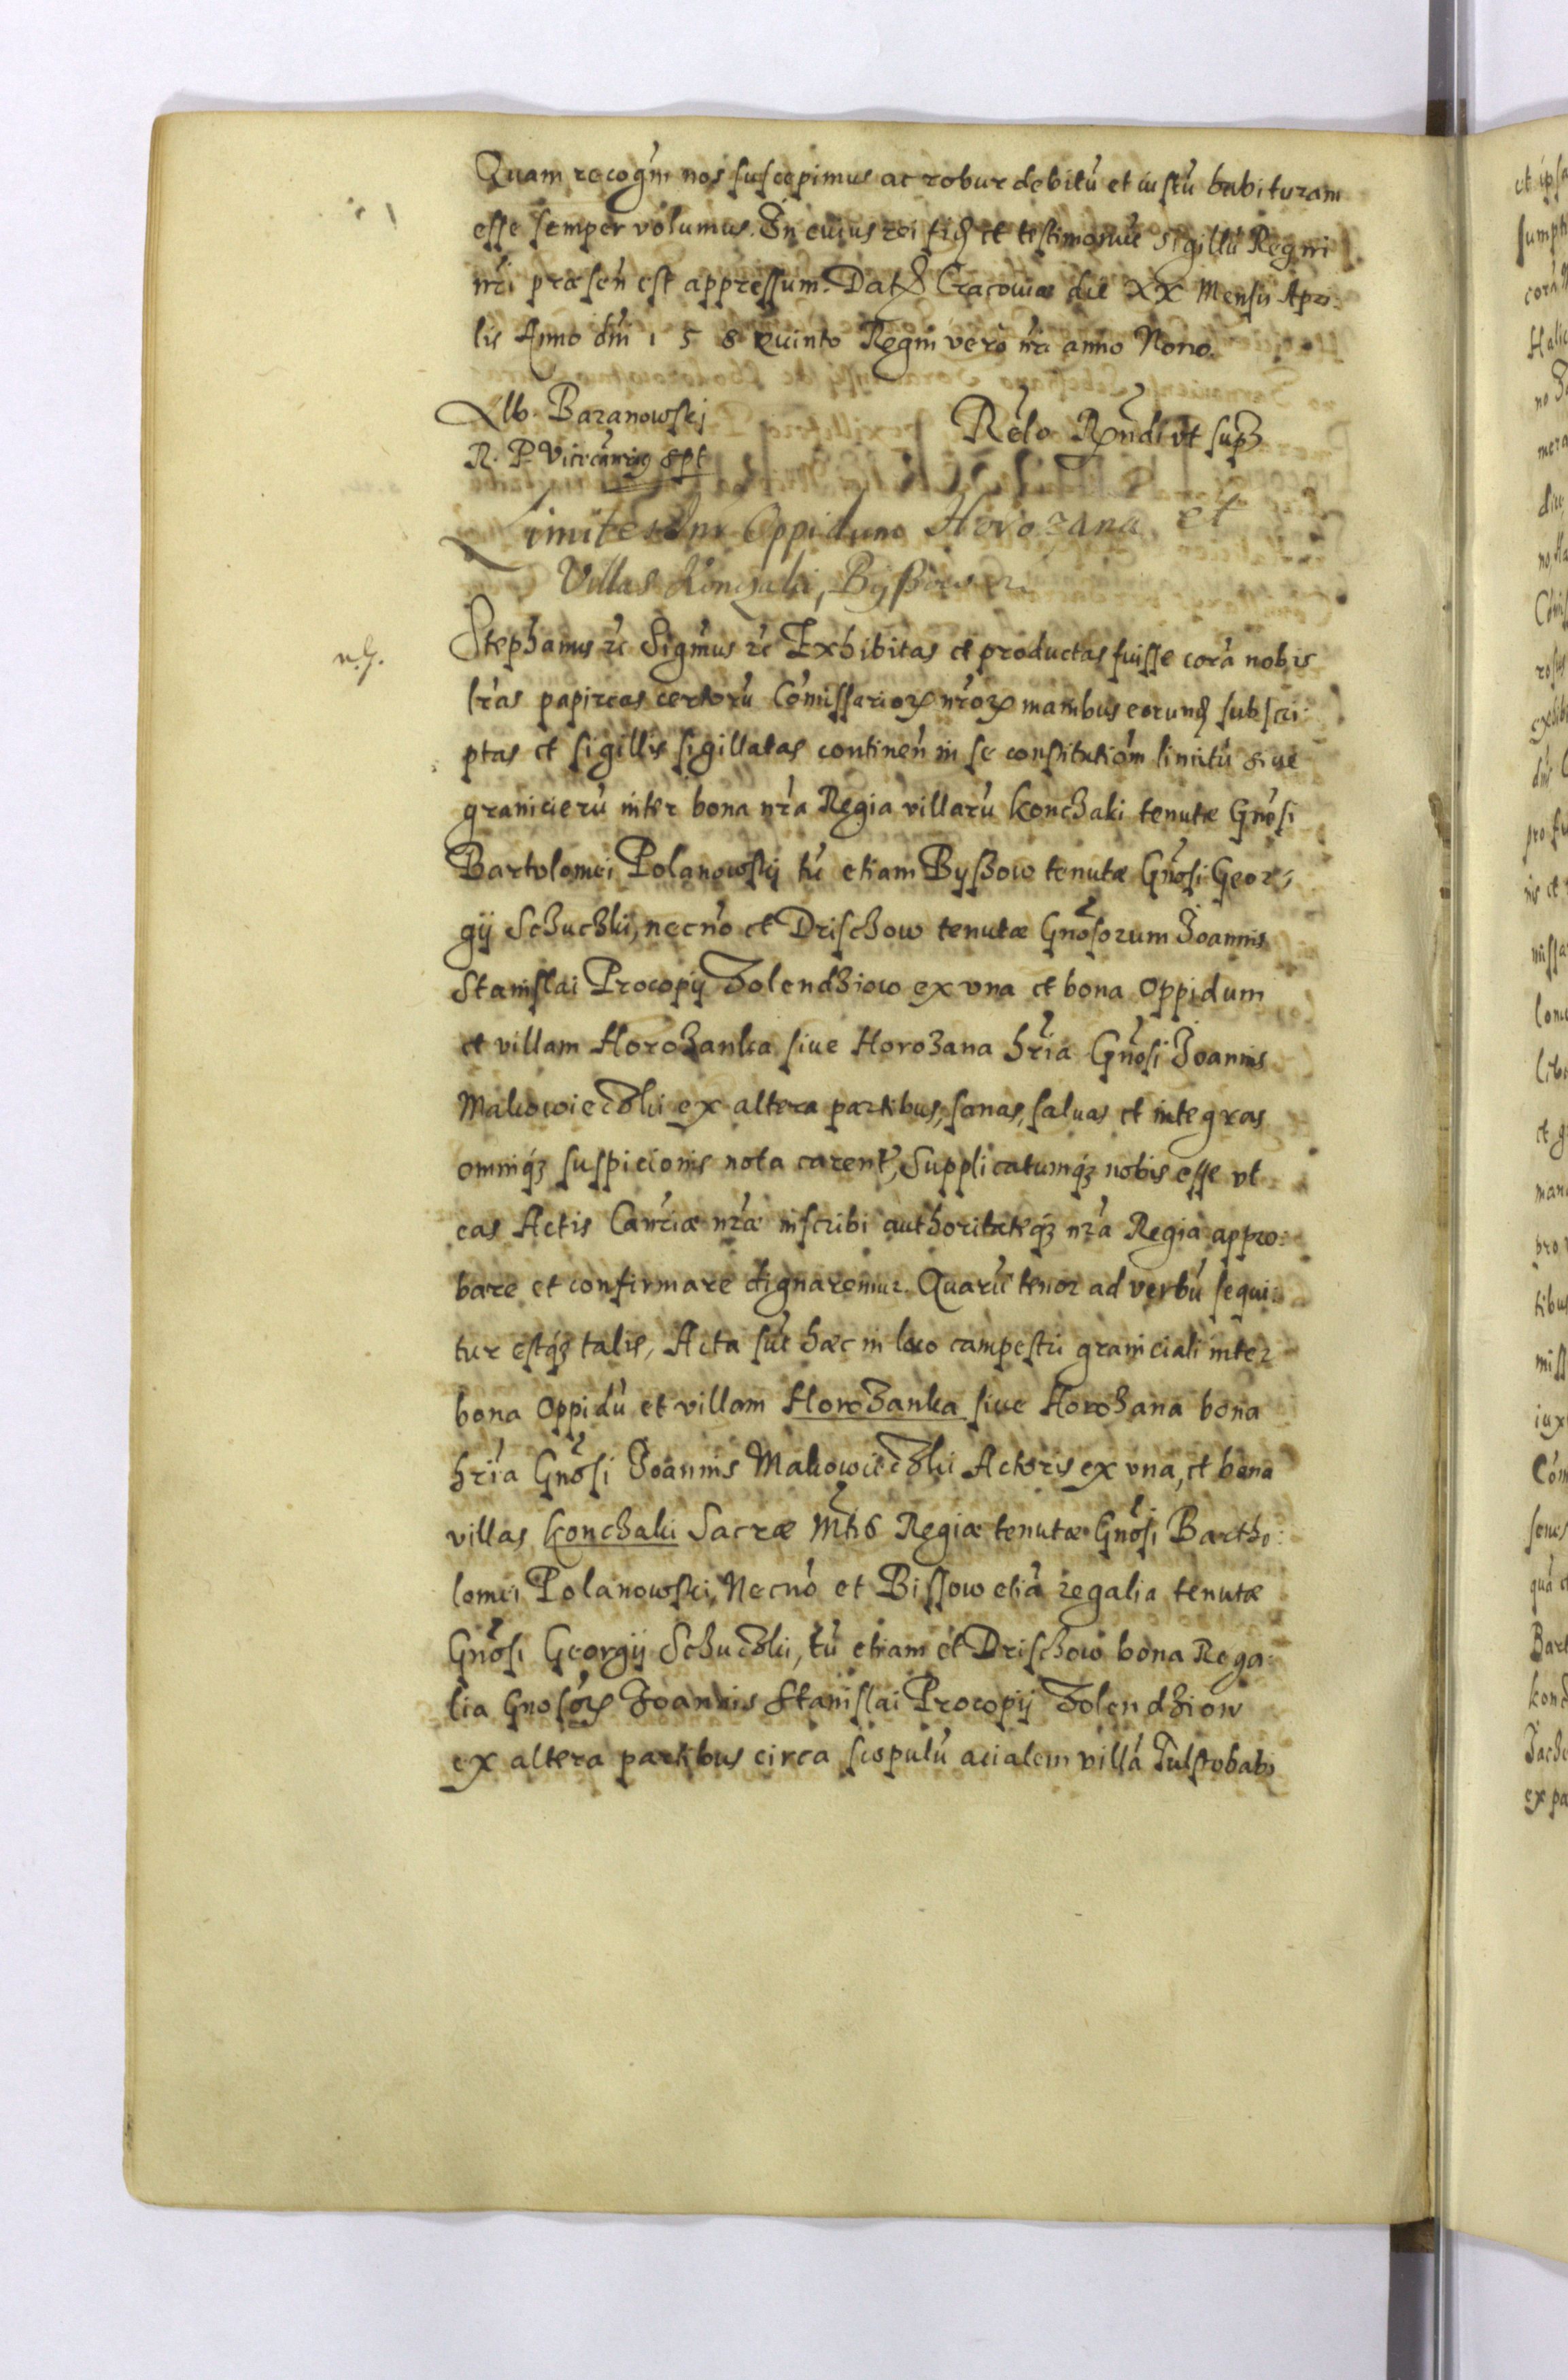 Quam recogm̃ nos suscepimus ac robur debitũ et iustũ habituram
esse semper volumus. In cuius rei fid et testimoniũ sigillũ Regni
nr̃i præsen̄ est appressum. Dat Cracoviæ die XX Mensis Apri:
lis Anno dñi 1 5 8 quinto Regni vero nr̃i anno Nono.
Alb. Baranowskj
R. P. Vicecancrius spt
Relo Rñdi vt supr
Limites Inr Oppidum Horozana et
Villas Konczaki, Byszow
n.g.
Stephanus &c Sigm̃us &c Exhibitas et productas fuisse corã nobis
lr̃as papireas certorũ Com̃issarioꝝ nr̃oꝝ manibus eorund subscri:
ptas et sigillis sigillatas continen̄ in se constitutiõm limitũ siue
granicierũ inter bona nr̃a Regia villarũ Konczaki tenutæ Gnõsi
Bartolomei Polanowskj tũ etiam Byszow tenutæ Gnõsi Geor:
gij Schuczki, necnõ et Drischow tenutæ Gnõsorum Joannis
Stanislai Procopij Zolendziow ex vna et bona Oppidum
et villam Horozanka siue Horozana hr̃ia Gnõsi Joannis
Makowieczki ex altera partibus, sanas, saluas et integras
omniqꝫ suspicionis nota carent, Supplicatumqꝫ nobis esse vt
eas Actis Canc̃iæ nr̃æ inscribi authoritateqꝫ nr̃a Regia appro:
bare et confirmare dignaremur. Quarũ tenor ad verbũ sequi:
tur estqꝫ talis, Acta sũt hæc in loco campestri graniciali inter
bona Oppidũ et villam Horozanka siue Horozana bona
hr̃ia Gnõsi Joannis Makowieczki Actoris ex vna, et bona
villas Konczaki Sacræ Mt̃is Regiæ tenutæ Gnõsi Bartho:
lomei Polanowski, Necnõ et Bissow etiã regalia tenutæ
Gnõsi Georgij Schuczki, tũ etiam et Drischow bona Rega:
lia Gnosõꝝ Joannis Stanislai Procopij Zolendziow
ex altera partibus circa scopulũ acialem villã Tulstobabi